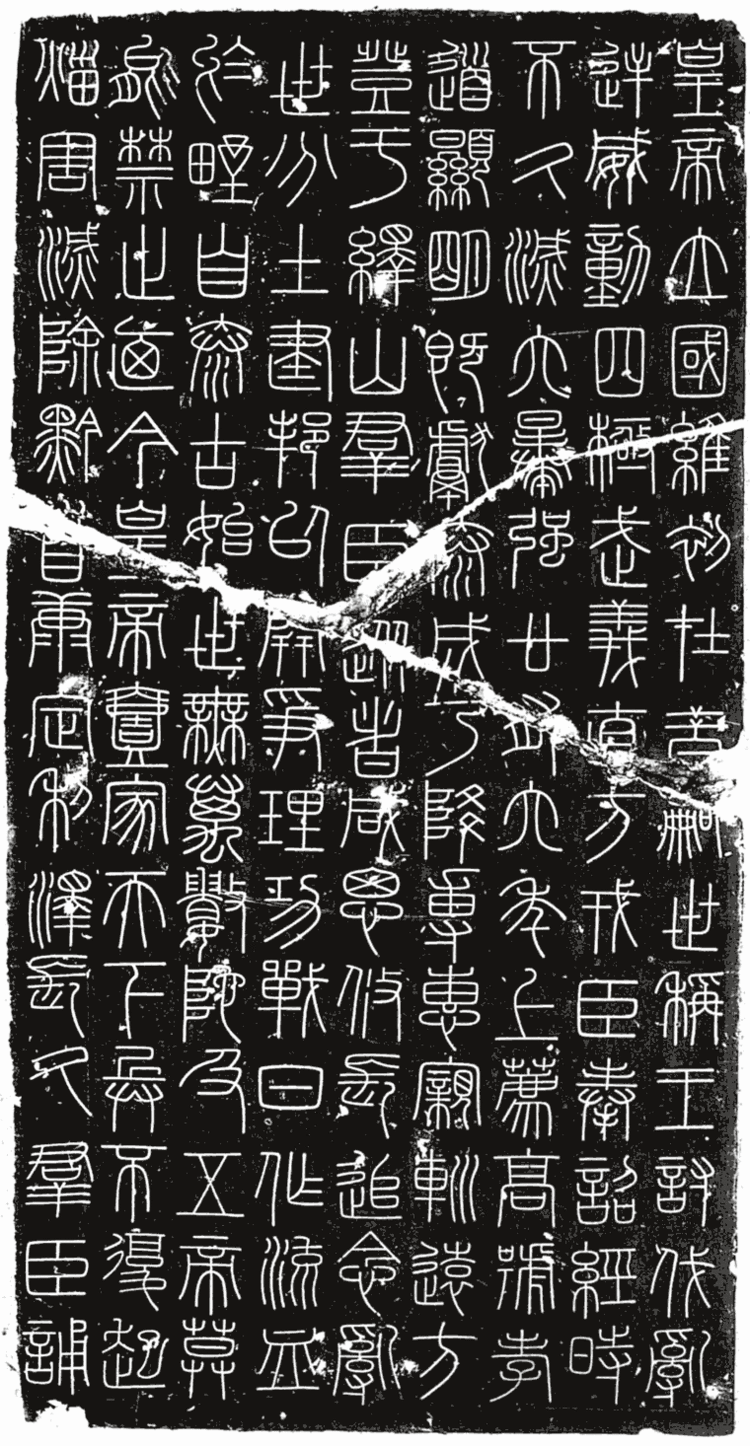 皇帝立國維初在昔嗣世稱王討伐亂
逆威動四極武義直方戎臣奉詔經時
不久滅六暴強廿有六年上薦高號孝
道顯明既獻泰成乃降專惠寴䡅遠方
登于繹山羣臣從者咸思攸長追念亂
世分土建邦以開爭理功戰日作流血
於野自泰古始世無萬數陀及五帝莫
能禁止廼今皇帝壹家天下兵不復起
災害滅除黔首康定利澤長久羣臣誦